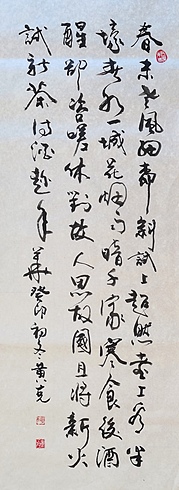 春未老風細柳斜斜試上超然臺上看半
壕春水一城花烟雨暗千家寒食後酒
醒卻咨嗟休對故人思故國且將新火
試新茶詩酒趁年
華癸卯初冬黄克